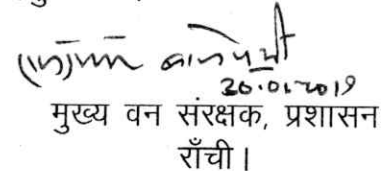 20.01.2019
मुख्य वन संरक्षक, प्रशासन
राँची।